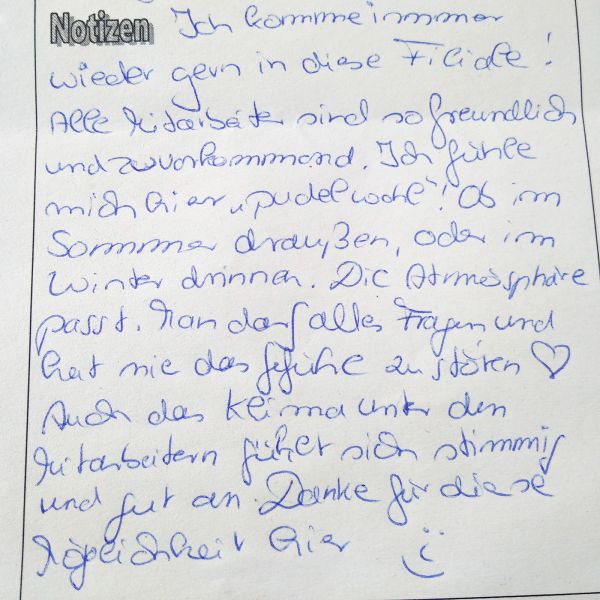 Notizen Ich komme immer
wieder gern in diese Filiale!
Alle Mitarbeiter sind so freundlich
und zuvorkommend. Ich fühle
mich hier „pudelwohl“! Ob im
Sommer draußen, oder im
Winter drinnen. Die Atmosphäre
passt. Man darf alles Fragen und
hat nie das Gefühle zu stören ♡
Auch das Klima unter den
Mitarbeitern fühlt sich stimmig
und gut an. Danke für diese
Möglichkeit hier ☺